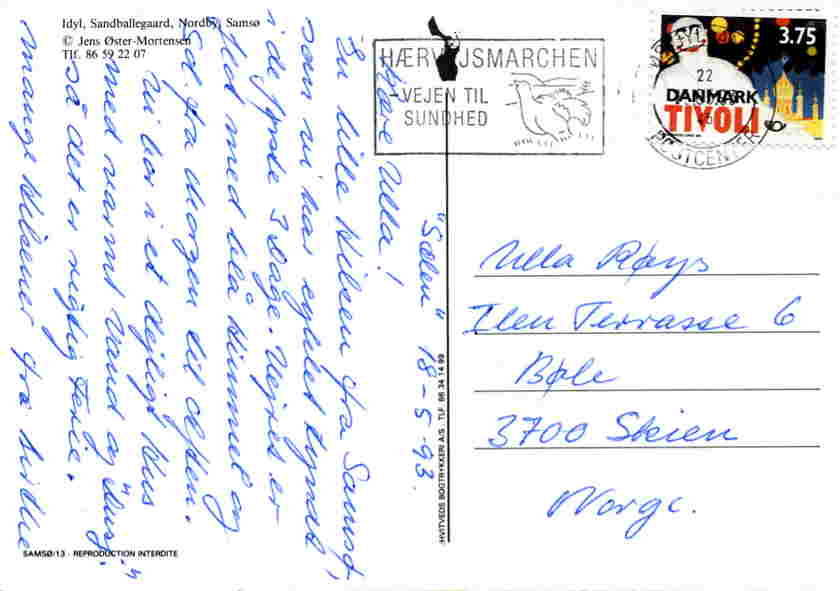 Idyl, Sandballegaard, Nordby, Samsø
© Jens Øster-Mortensen
Tlf. 86 59 22 07
HÆRVEJSMARCHEN
-VEJEN TIL
SUNDHED
22
POSTCENTER
3.75
DANMARK
TIVOLI
"Sælen" 18-5-93.
Kære Ulla!
En lille Hilsen fra Samsø,
som vi har cyklet rundt
i de første 3 Dage. Vejret er
flot med blå Himmel og
Sol fra Morgen til Aften.
Vi bor i et dejligt Hus
med varmt Vand og
så det er rigtig Ferie.
Mange Hilsener fra
Ulla Røys
Ilen Terrasse 6
Bøle
3700 Skien
Norge.
HVITVEDS BOGTRYKKERI A/S . TLF. 86 34 14 99
SAMSØ/13 - REPRODUCTION INTERDITE